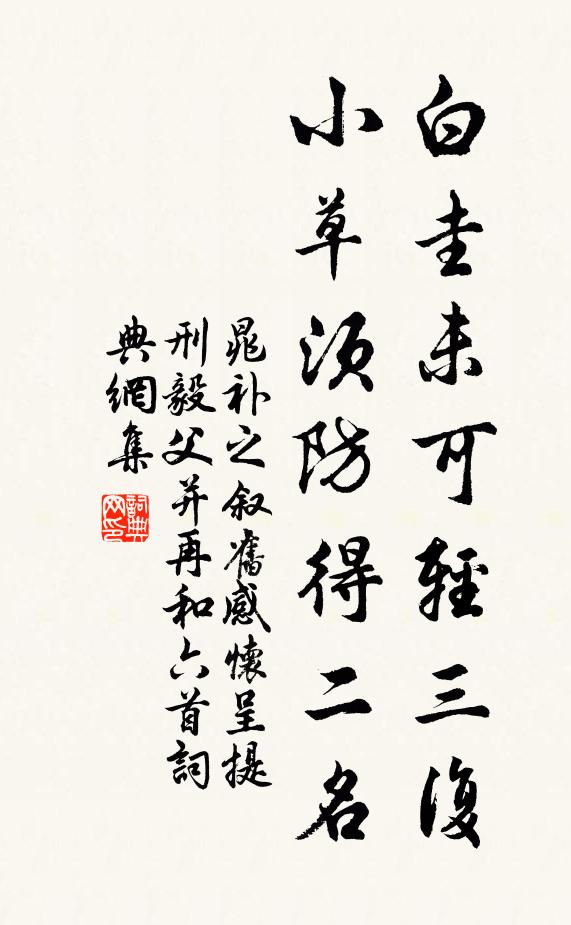 白圭未可輕三復
小草須防得二名
晁补之叙舊感懷呈提
刑毅父并再和六首詞
典網集
詞典网印